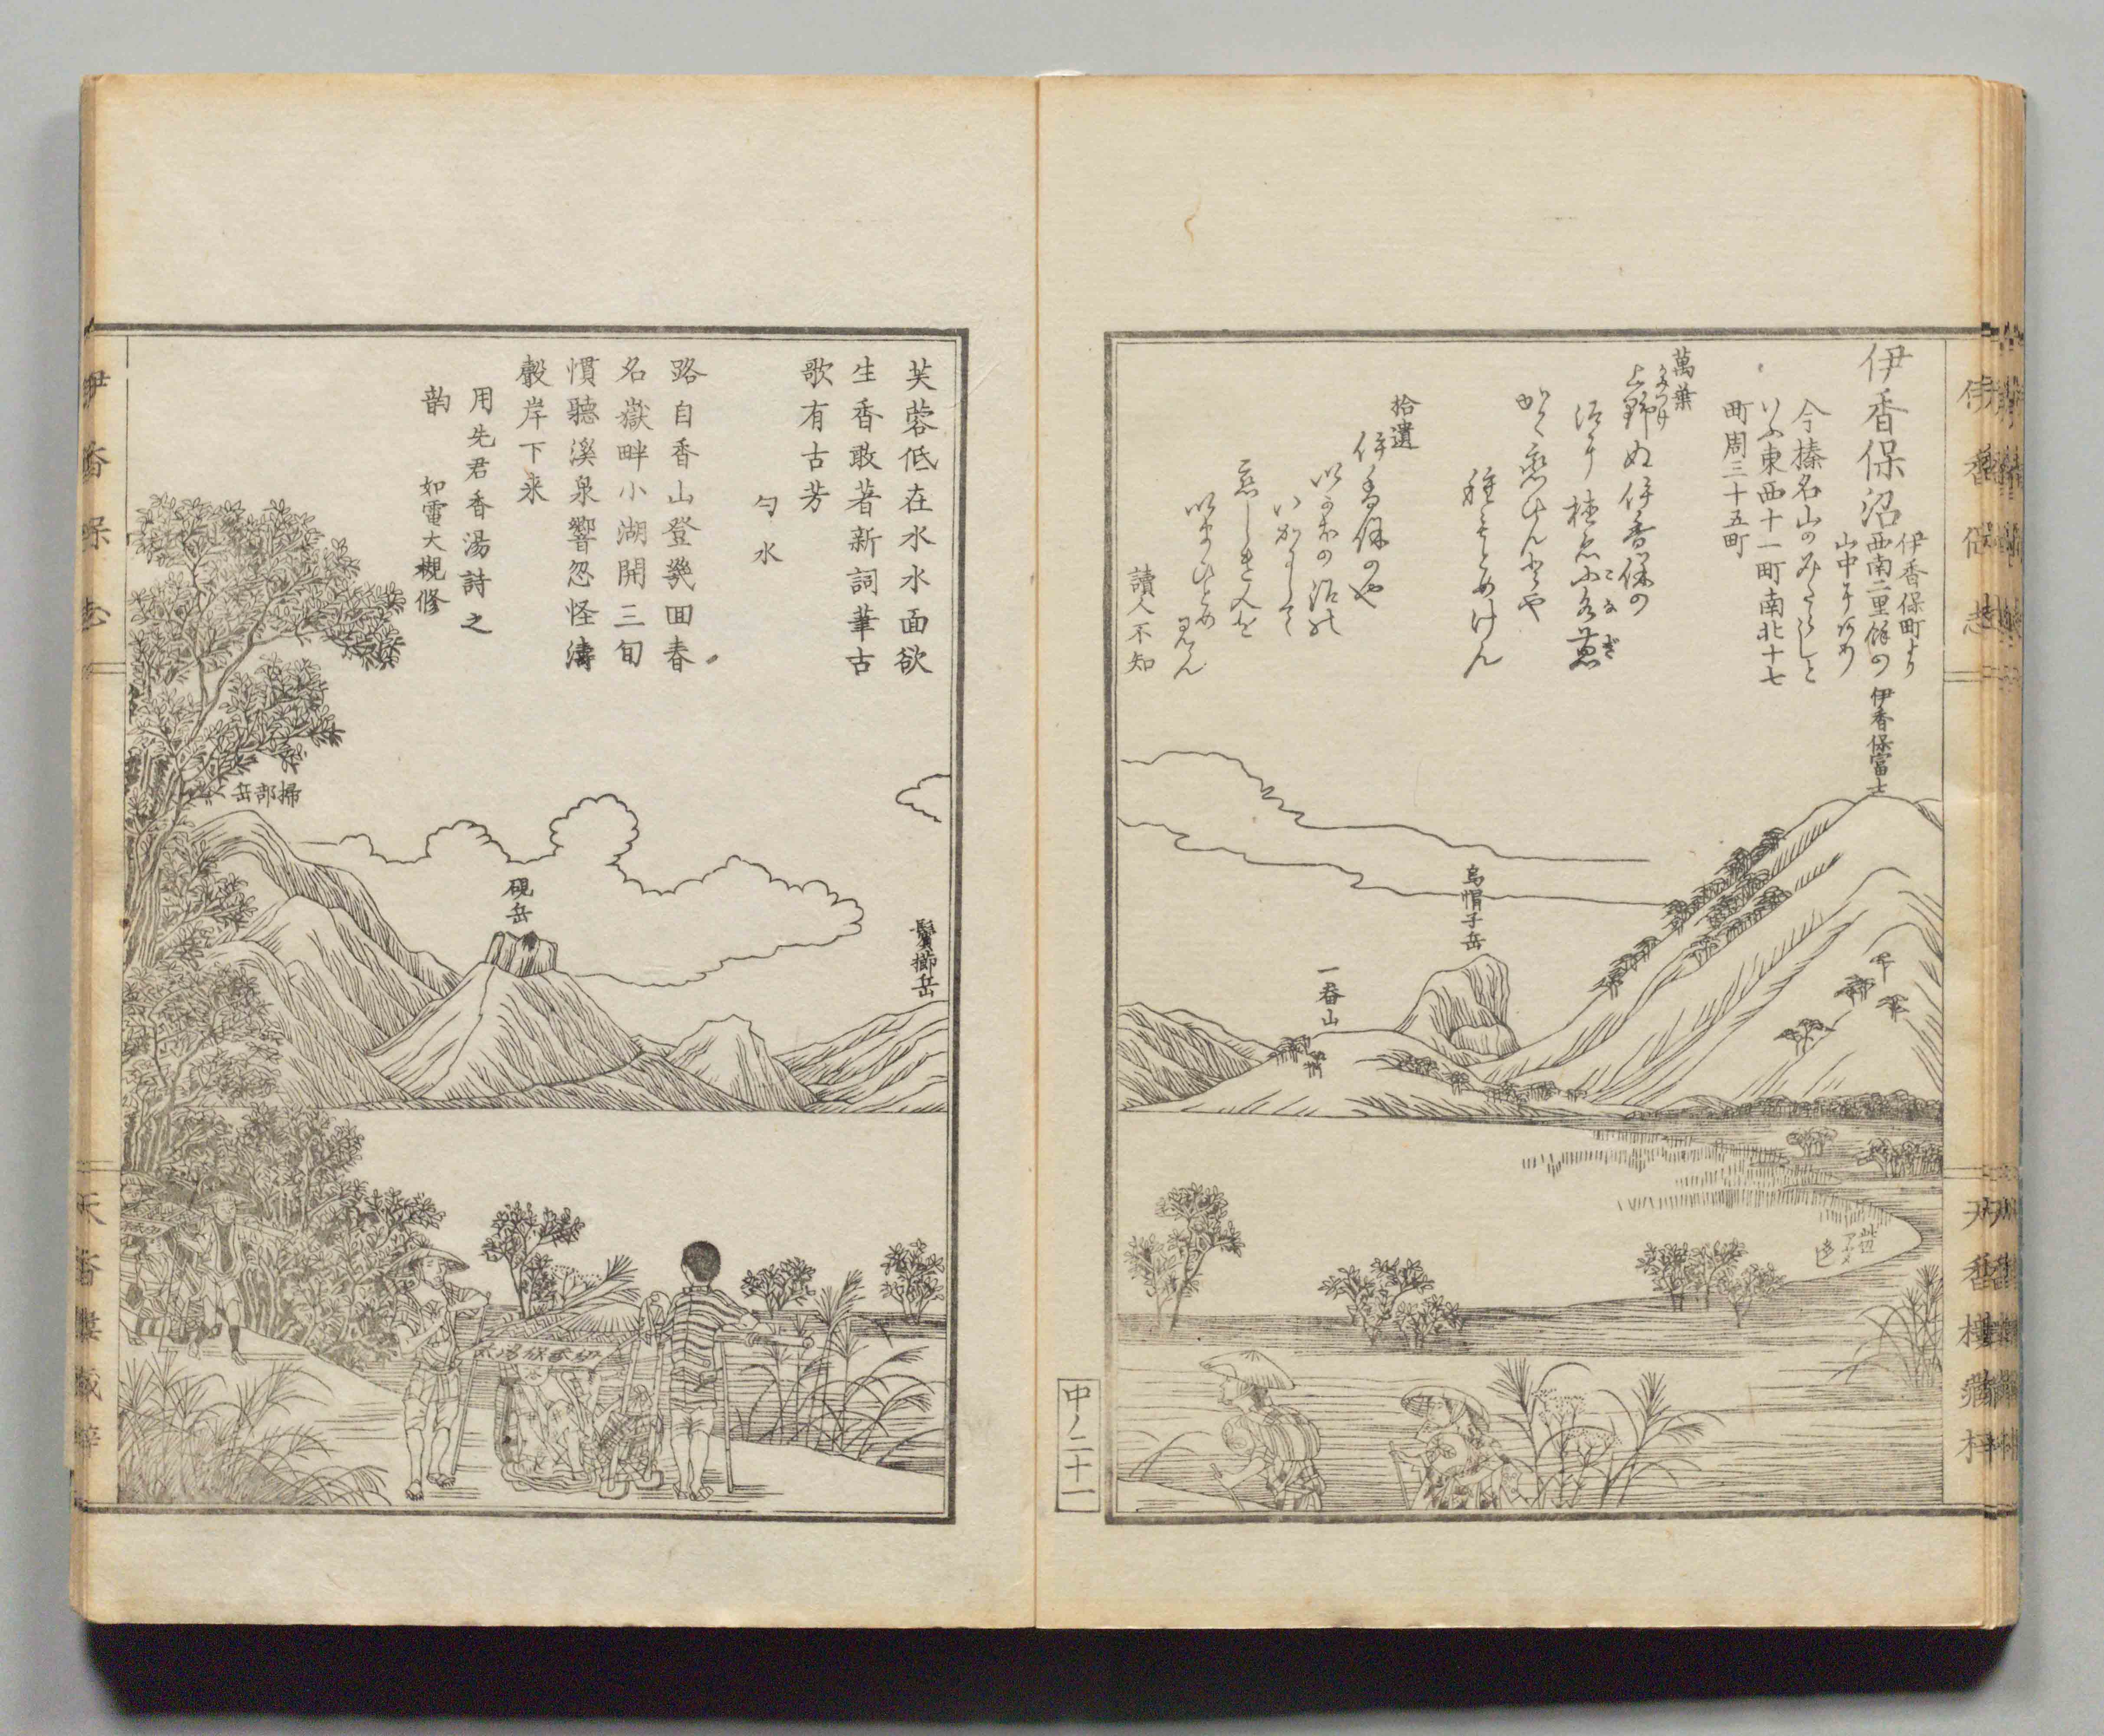 伊香保志
天香樓藏梓
伊香保沼
伊香保町より
西南二里餘の
山中にあり
今榛名山のみたらしと
いふ東西十一町南北十七
町周三十五町
萬葉
かみつけ
上野ぬ伊香保の
沼に植ゑ小水葱
こなぎ
かく戀ひんとや
種もとめけん
拾遺
伊香保のや
いかほの沼の
いかにして
戀しき人を
いまひとめ
みん
讀人不知
伊香保富士
烏帽子岳
一番山
此辺
アヤメ
中ノ二十一
芙蓉低在水水面欲
生香敢著新詞筆古
歌有古芳
勺水
路自香山登幾回春
名嶽畔小湖開三旬
慣聽溪泉響忽怪濤
聲岸下来
用先君香湯詩之
韵
如電大槻修
鬢櫛岳
硯岳
掃部岳
伊香保志
天香樓藏梓